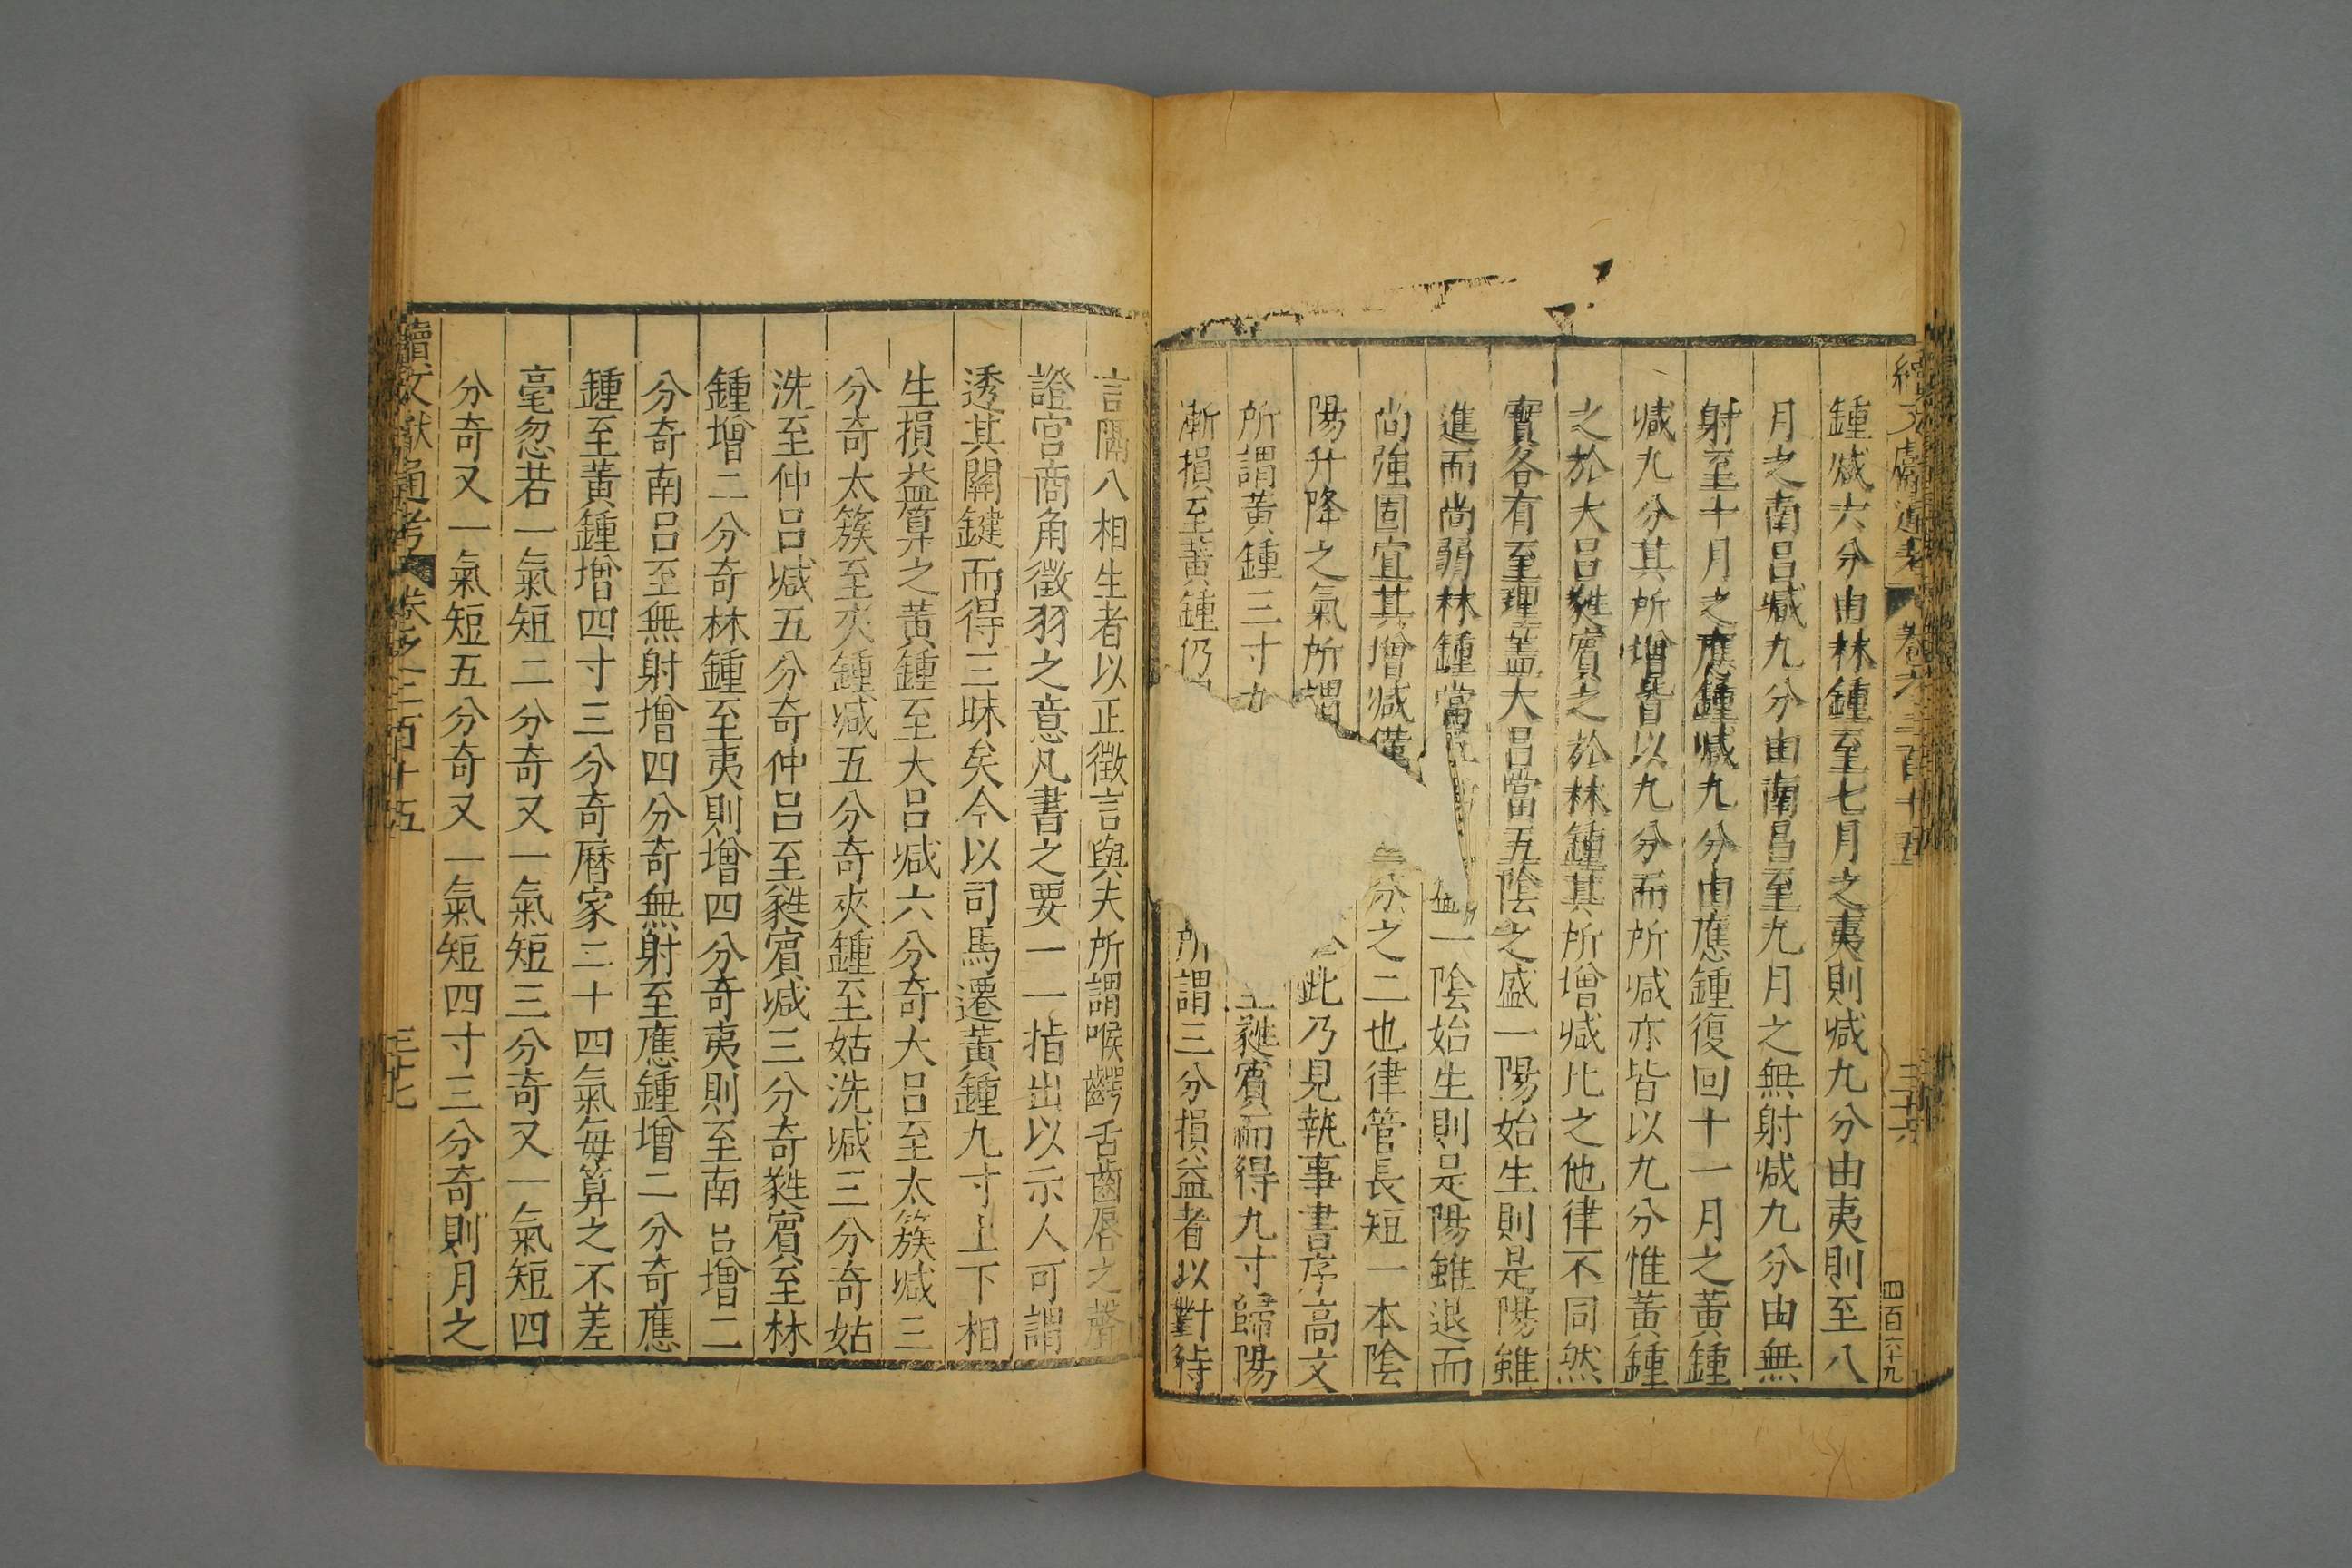 續文獻通考 卷之二百十五 三十六 四百六十九
鍾减六分由林鍾至七月之夷則减九分由夷則至八
月之南呂减九分由南呂至九月之無射减九分由無
射至十月之應鍾减九分由應鍾復回十一月之黃鍾
减九分其所增皆以九分而所减亦皆以九分惟黃鍾
之於大呂蕤賓之於林鍾其所增减比之他律不同然
實各有至理蓋大呂當五陰之盛一陽始生則是陽雖
進而尚弱林鍾當五 一陰始生則是陽雖退而
尚強固宜其增减僅 分之二也律管長短一本陰
陽升降之氣所謂 此乃見執事書序高文
所謂黃鍾三寸九 至蕤賓而得九寸歸陽
漸損至黃鍾仍 所謂三分損益者以對待
言隔八相生者以正徵言與夫所謂喉齶舌齒唇之聲
證宮商角徵羽之意凡書之要一一指出以示人可謂
透其關鍵而得三昧矣今以司馬遷黃鍾九寸上下相
生損益算之黃鍾至大呂减六分奇大呂至太簇减三
分奇太簇至夾鍾减五分奇夾鍾至姑洗减三分奇姑
洗至仲呂减五分奇仲呂至蕤賓减三分奇蕤賓至林
鍾增二分奇林鍾至夷則增四分奇夷則至南呂增二
分奇南呂至無射增四分奇無射至應鍾增二分奇應
鍾至黃鍾增四寸三分奇曆家二十四氣每算之不差
毫忽若一氣短二分奇又一氣短三分奇又一氣短四
分奇又一氣短五分奇又一氣短四寸三分奇則月之
續文獻通考 卷之二百十五 三十七